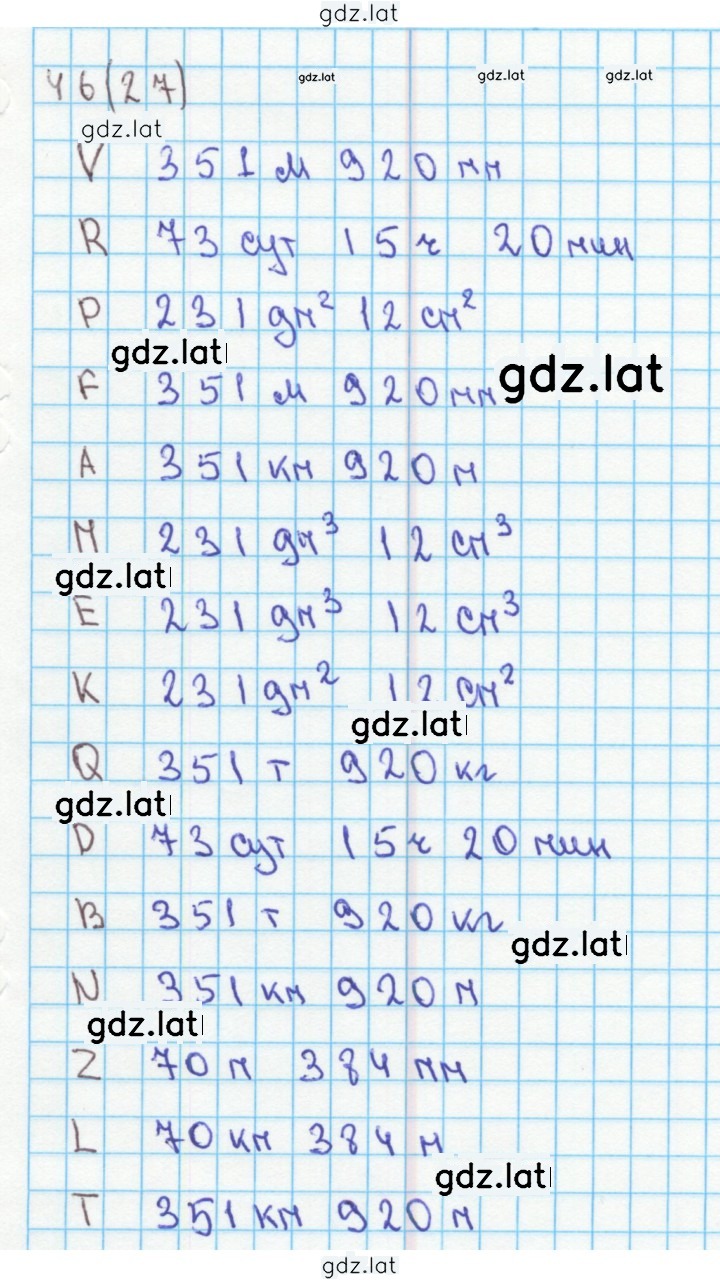 gdz.lat
46(27)
gdz.lat gdz.lat gdz.lat
gdz.lat
V 351 м 920 мм
R 73 сут 15 ч 20 мин
P 231 дм² 12 см²
gdz.lat
gdz.lat
F 351 м 920 мм
A 351 км 920 м
M 231 дм³ 12 см³
gdz.lat
E 231 дм³ 12 см³
K 231 дм² 12 см²
gdz.lat
Q 351 т 920 кг
gdz.lat
D 73 сут 15 ч 20 мин
B 351 т 920 кг
gdz.lat
N 351 км 920 м
gdz.lat
Z 70 м 384 мм
L 70 км 384 м
gdz.lat
T 351 км 920 м
gdz.lat